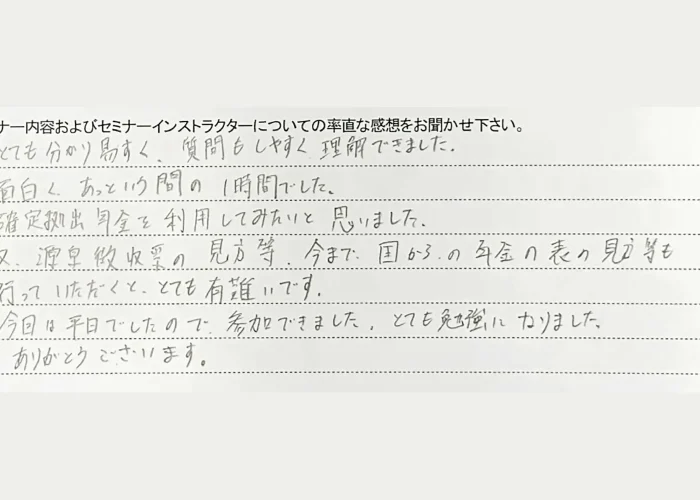 ナー内容およびセミナーインストラクターについての率直な感想をお聞かせ下さい。
とても分かり易すく、質問もしやすく理解できました。
面白く、あっという間の1時間でした。
確定拠出年金を利用してみたいと思いました。
又、源泉徴収票の見方等、今まで国からの年金の表の見方等も
行っていただくと、とても有難いです。
今回は平日でしたので、参加できました。とても勉強になりました。
ありがとうございます。